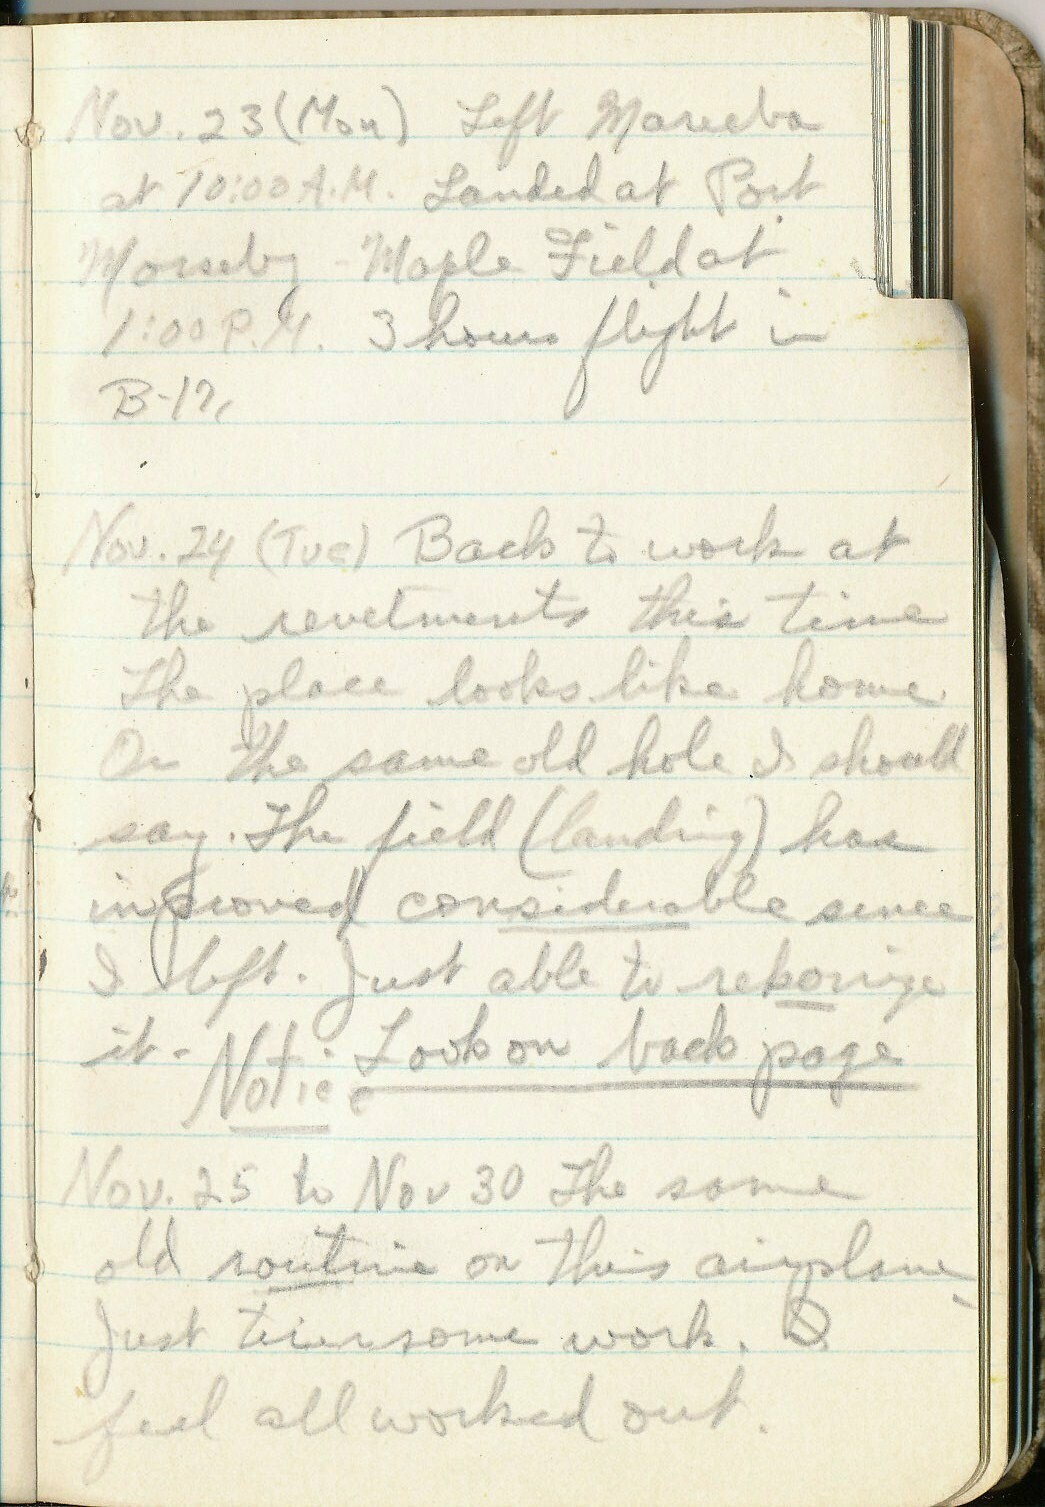 Nov. 23 (Mon) Left Mareeba
at 10:00 A.M. Landed at Port
Morseby - Maple Field at
1:00 P.M. 3 hours flight in
B-17,
Nov. 24 (Tue) Back to work at
the revetments this time
The place looks like home.
Or the same old hole I should
say. The field (landing) has
improved considerable since
I left. Just able to rekonize
it. Notice: Look on back page
Nov. 25 to Nov 30 The same
old routine on this airplane
Just tiersome work. I
feel all worked out.